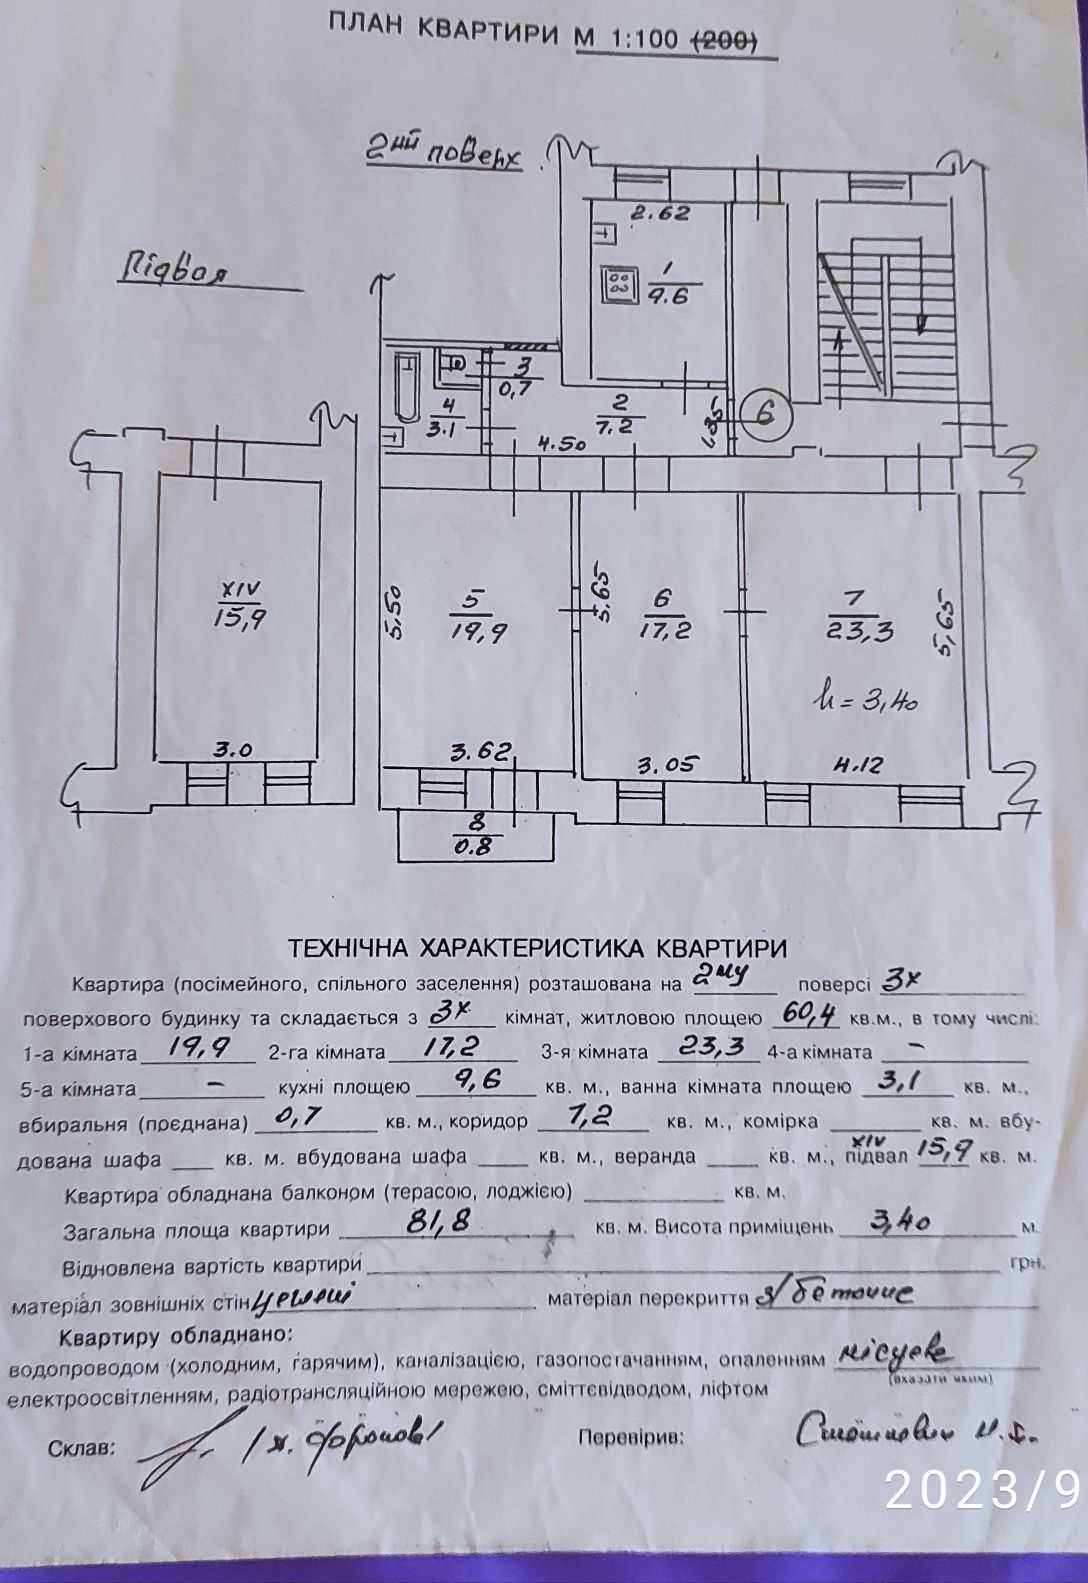 ПЛАН КВАРТИРИ М 1:100 (200)
2ий поверх
Підвал
2.62
1
9.6
3
0,7
4
3.1
2
7.2
4.50
1.35
6
XIV
15,9
5.50
5
19,9
5.65
6
17,2
7
23,3
5,65
h = 3,40
3.0
3.62
3.05
4.12
8
0.8
ТЕХНІЧНА ХАРАКТЕРИСТИКА КВАРТИРИ
Квартира (посімейного, спільного заселення) розташована на 2му поверсі 3х
поверхового будинку та складається з 3х кімнат, житловою площею 60,4 кв.м., в тому числі:
1-а кімната 19,9 2-га кімната 17,2 3-я кімната 23,3 4-а кімната –
5-а кімната – кухні площею 9,6 кв. м., ванна кімната площею 3,1 кв. м.,
вбиральня (поєднана) 0,7 кв. м., коридор 7,2 кв. м., комірка кв. м. вбу-
дована шафа кв. м. вбудована шафа кв. м., веранда кв. м., XIV підвал 15,9 кв. м.
Квартира обладнана балконом (терасою, лоджією) кв. м.
Загальна площа квартири 81,8 кв. м. Висота приміщень 3,40 м.
Відновлена вартість квартири грн.
матеріал зовнішніх стін матеріал перекриття з/бетонне
Квартиру обладнано:
водопроводом (холодним, гарячим), каналізацією, газопостачанням, опаленням місцеве
(вказати яким)
електроосвітленням, радіотрансляційною мережею, сміттєвідводом, ліфтом
Склав: Перевірив:
2023/9